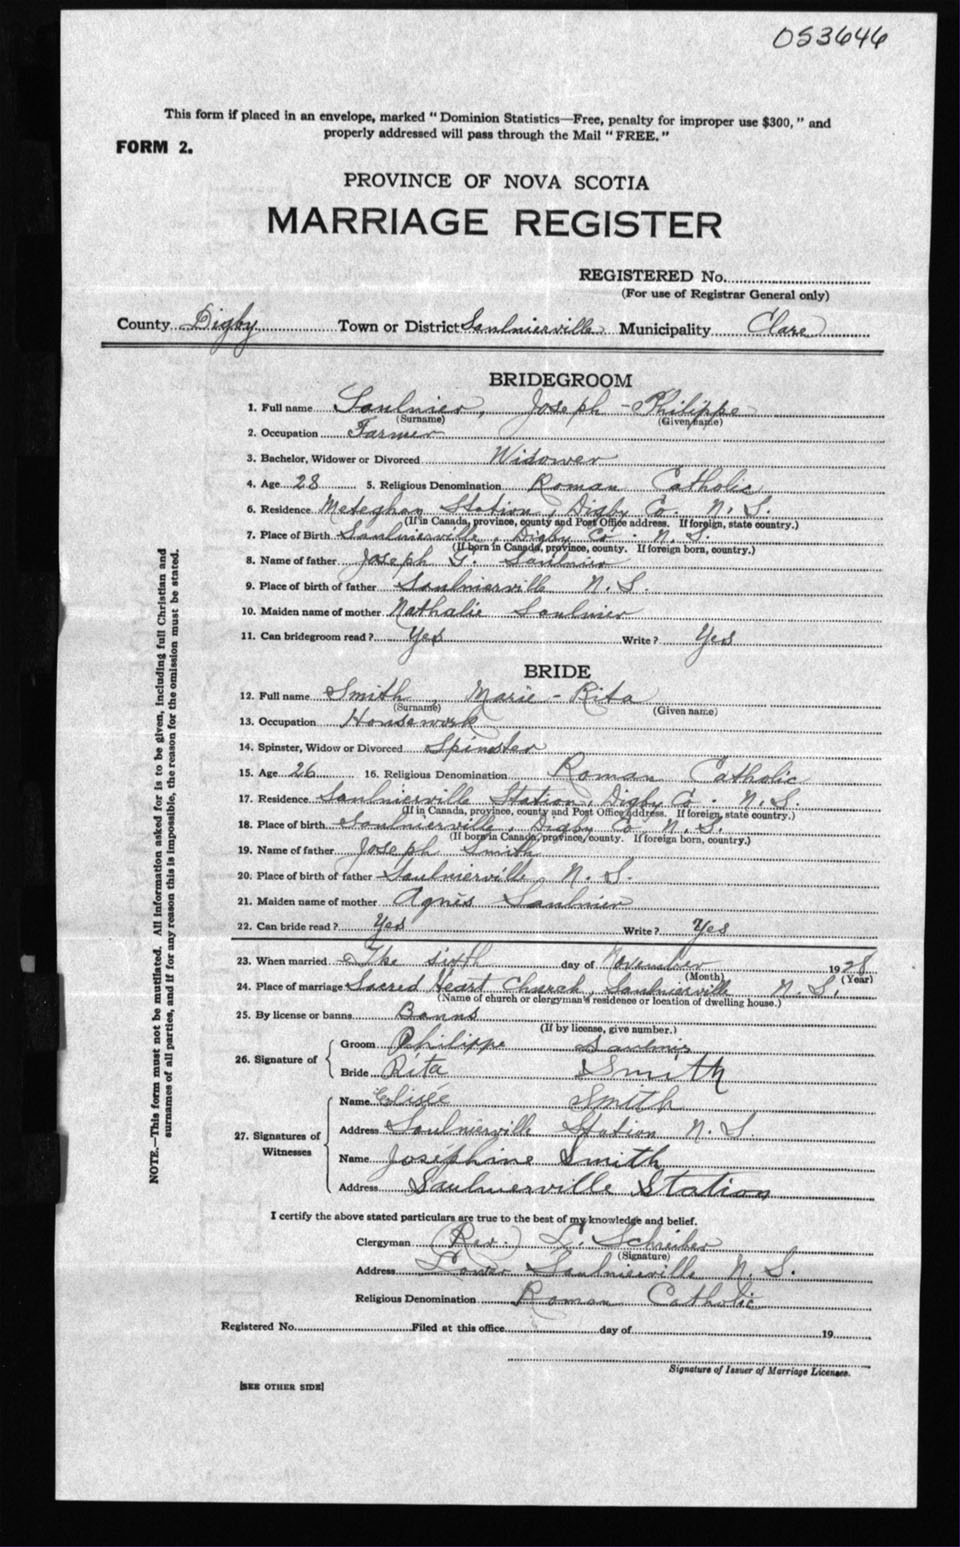 053646
This form if placed in an envelope, marked "Dominion Statistics—Free, penalty for improper use $300," and
properly addressed will pass through the Mail "FREE."
FORM 2.
PROVINCE OF NOVA SCOTIA
MARRIAGE REGISTER
REGISTERED No.
(For use of Registrar General only)
County Digby Town or District Saulnierville Municipality Clare
BRIDEGROOM
1. Full name Saulnier, Joseph - Philippe
(Surname) (Given name)
2. Occupation Farmer
3. Bachelor, Widower or Divorced Widower
4. Age 28 5. Religious Denomination Roman Catholic
6. Residence Meteghan Station, Digby Co. N.S.
(If in Canada, province, county and Post Office address. If foreign, state country.)
7. Place of Birth Saulnierville, Digby Co. N.S.
(If born in Canada, province, county. If foreign born, country.)
8. Name of father Joseph G. Saulnier
9. Place of birth of father Saulnierville N.S.
10. Maiden name of mother Nathalie Saulnier
11. Can bridegroom read? Yes Write? Yes
BRIDE
12. Full name Smith, Marie - Rita
(Surname) (Given name)
13. Occupation Housework
14. Spinster, Widow or Divorced Spinster
15. Age 26 16. Religious Denomination Roman Catholic
17. Residence Saulnierville Station, Digby Co. N.S.
(If in Canada, province, county and Post Office address. If foreign, state country.)
18. Place of birth Saulnierville, Digby Co. N.S.
(If born in Canada, province, county. If foreign born, country.)
19. Name of father Joseph Smith
20. Place of birth of father Saulnierville N.S.
21. Maiden name of mother Agnès Saulnier
22. Can bride read? Yes Write? Yes
23. When married The sixth day of November 1928
(Month) (Year)
24. Place of marriage Sacred Heart Church, Saulnierville N.S.
(Name of church or clergyman's residence or location of dwelling house.)
25. By license or banns Banns
(If by license, give number.)
26. Signature of Groom Philippe Saulnier
Bride Rita Smith
27. Signatures of Witnesses
Name Elisée Smith
Address Saulnierville Station N.S.
Name Joséphine Smith
Address Saulnierville Station
I certify the above stated particulars are true to the best of my knowledge and belief.
Clergyman (Rev.) L. Schreiber
(Signature)
Address Lower Saulnierville N.S.
Religious Denomination Roman Catholic
Registered No. Filed at this office day of 19
Signature of Issuer of Marriage Licenses.
[SEE OTHER SIDE]
NOTE.—This form must not be mutilated. All information asked for is to be given, including full Christian and
surnames of all parties, and if for any reason this is impossible, the reason for the omission must be stated.